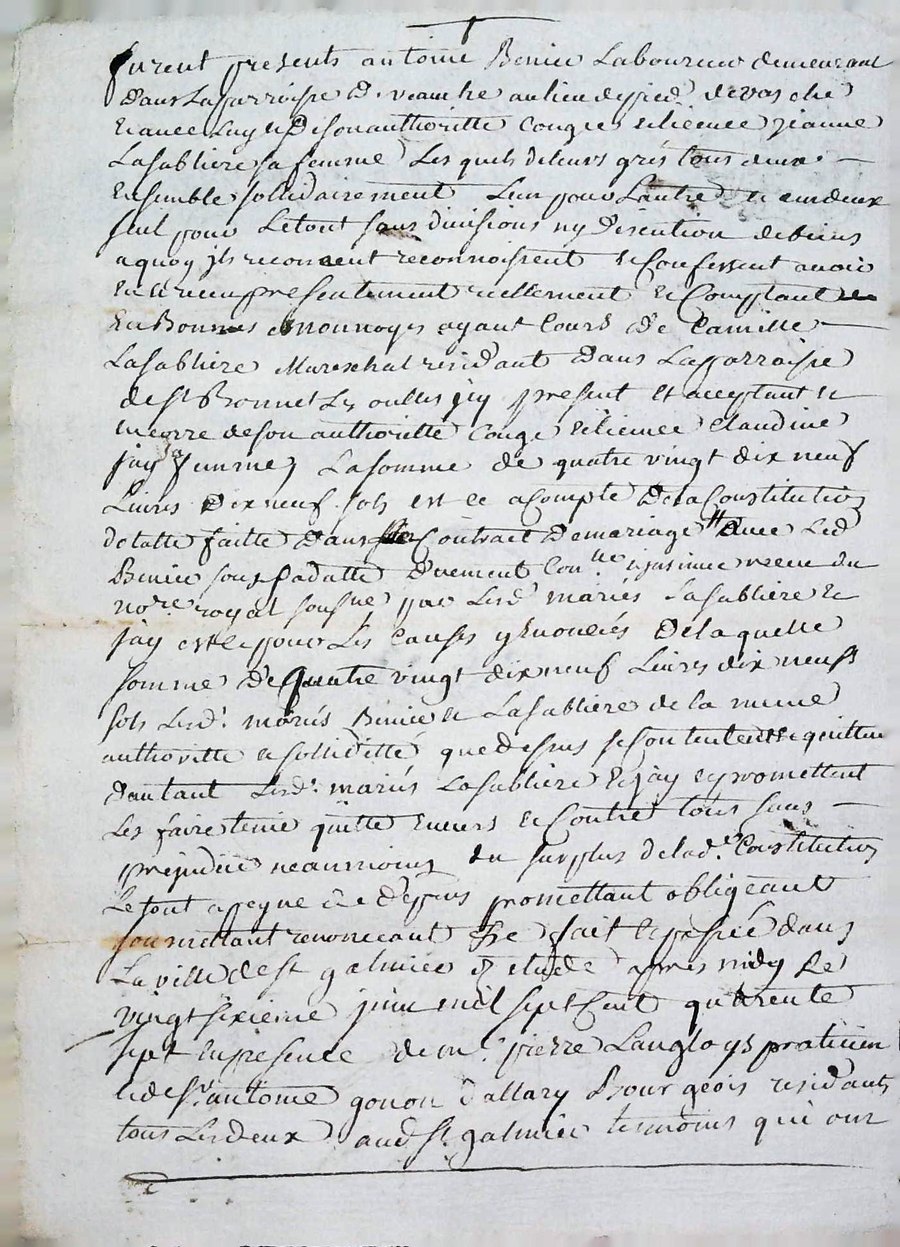 furent presents antoine Benier Laboureur demeurant
dans La parroisse de veauche au lieu de pied devache
et avec Luy et de son authoritté congé et licence jeanne
Lasabliere sa femme Les quels de leurs grés tous deux
Ensemble sollidairement L'un pour L'autre et un deux
seul pour Le tout sans divisions ny discution de biens
a quoy ils renoncent reconnoissent et Confessent avoir
eu et receu presentement reellement et Comptant
En Bonnes monnoyes ayant Cours de Camille
Lasabliere Mareschal residant dans La parroisse
de st Bonnet Les oulles icy present et acceptant et
encorre de son authoritté congé et licence Claudine
jay sa femme La somme de quatre vingt dix neuf
Livres dix neuf sols est ce a Compte de la Constitution
de datte faitte dans Contract de mariage avec Led
Benier sous sa datte duement Con.lle et insinué receu du
no.re royal sousne par Lesd mariés Lasabliere et
jay et ce pour Les Causes y Enoncés De la quelle
somme de quatre vingt dix neuf Livres dix neuf
sols Lesd. mariés Benier et Lasabliere de la meme
authoritté et solliditté que dessus se contentent et quittent
d'autant Lesd. mariés Lasabliere et jay et promettent
Les faire tenir quitte envers et Contre tous sans
prejudice neanmoins du surplus de lad.e Constitution
Le tout a peyne de depens promettant obligeant
soumettant renoncant &c fait et passé dans
La ville de st galmier etude apres midy Le
vingt sixieme juin mil sept Cent quarente
sept En presence de m.e pierre Langloys praticien
et de sr. antoine gonon d'allary Bourgeois residants
tous Les deux aud st. galmier temoins qui ont